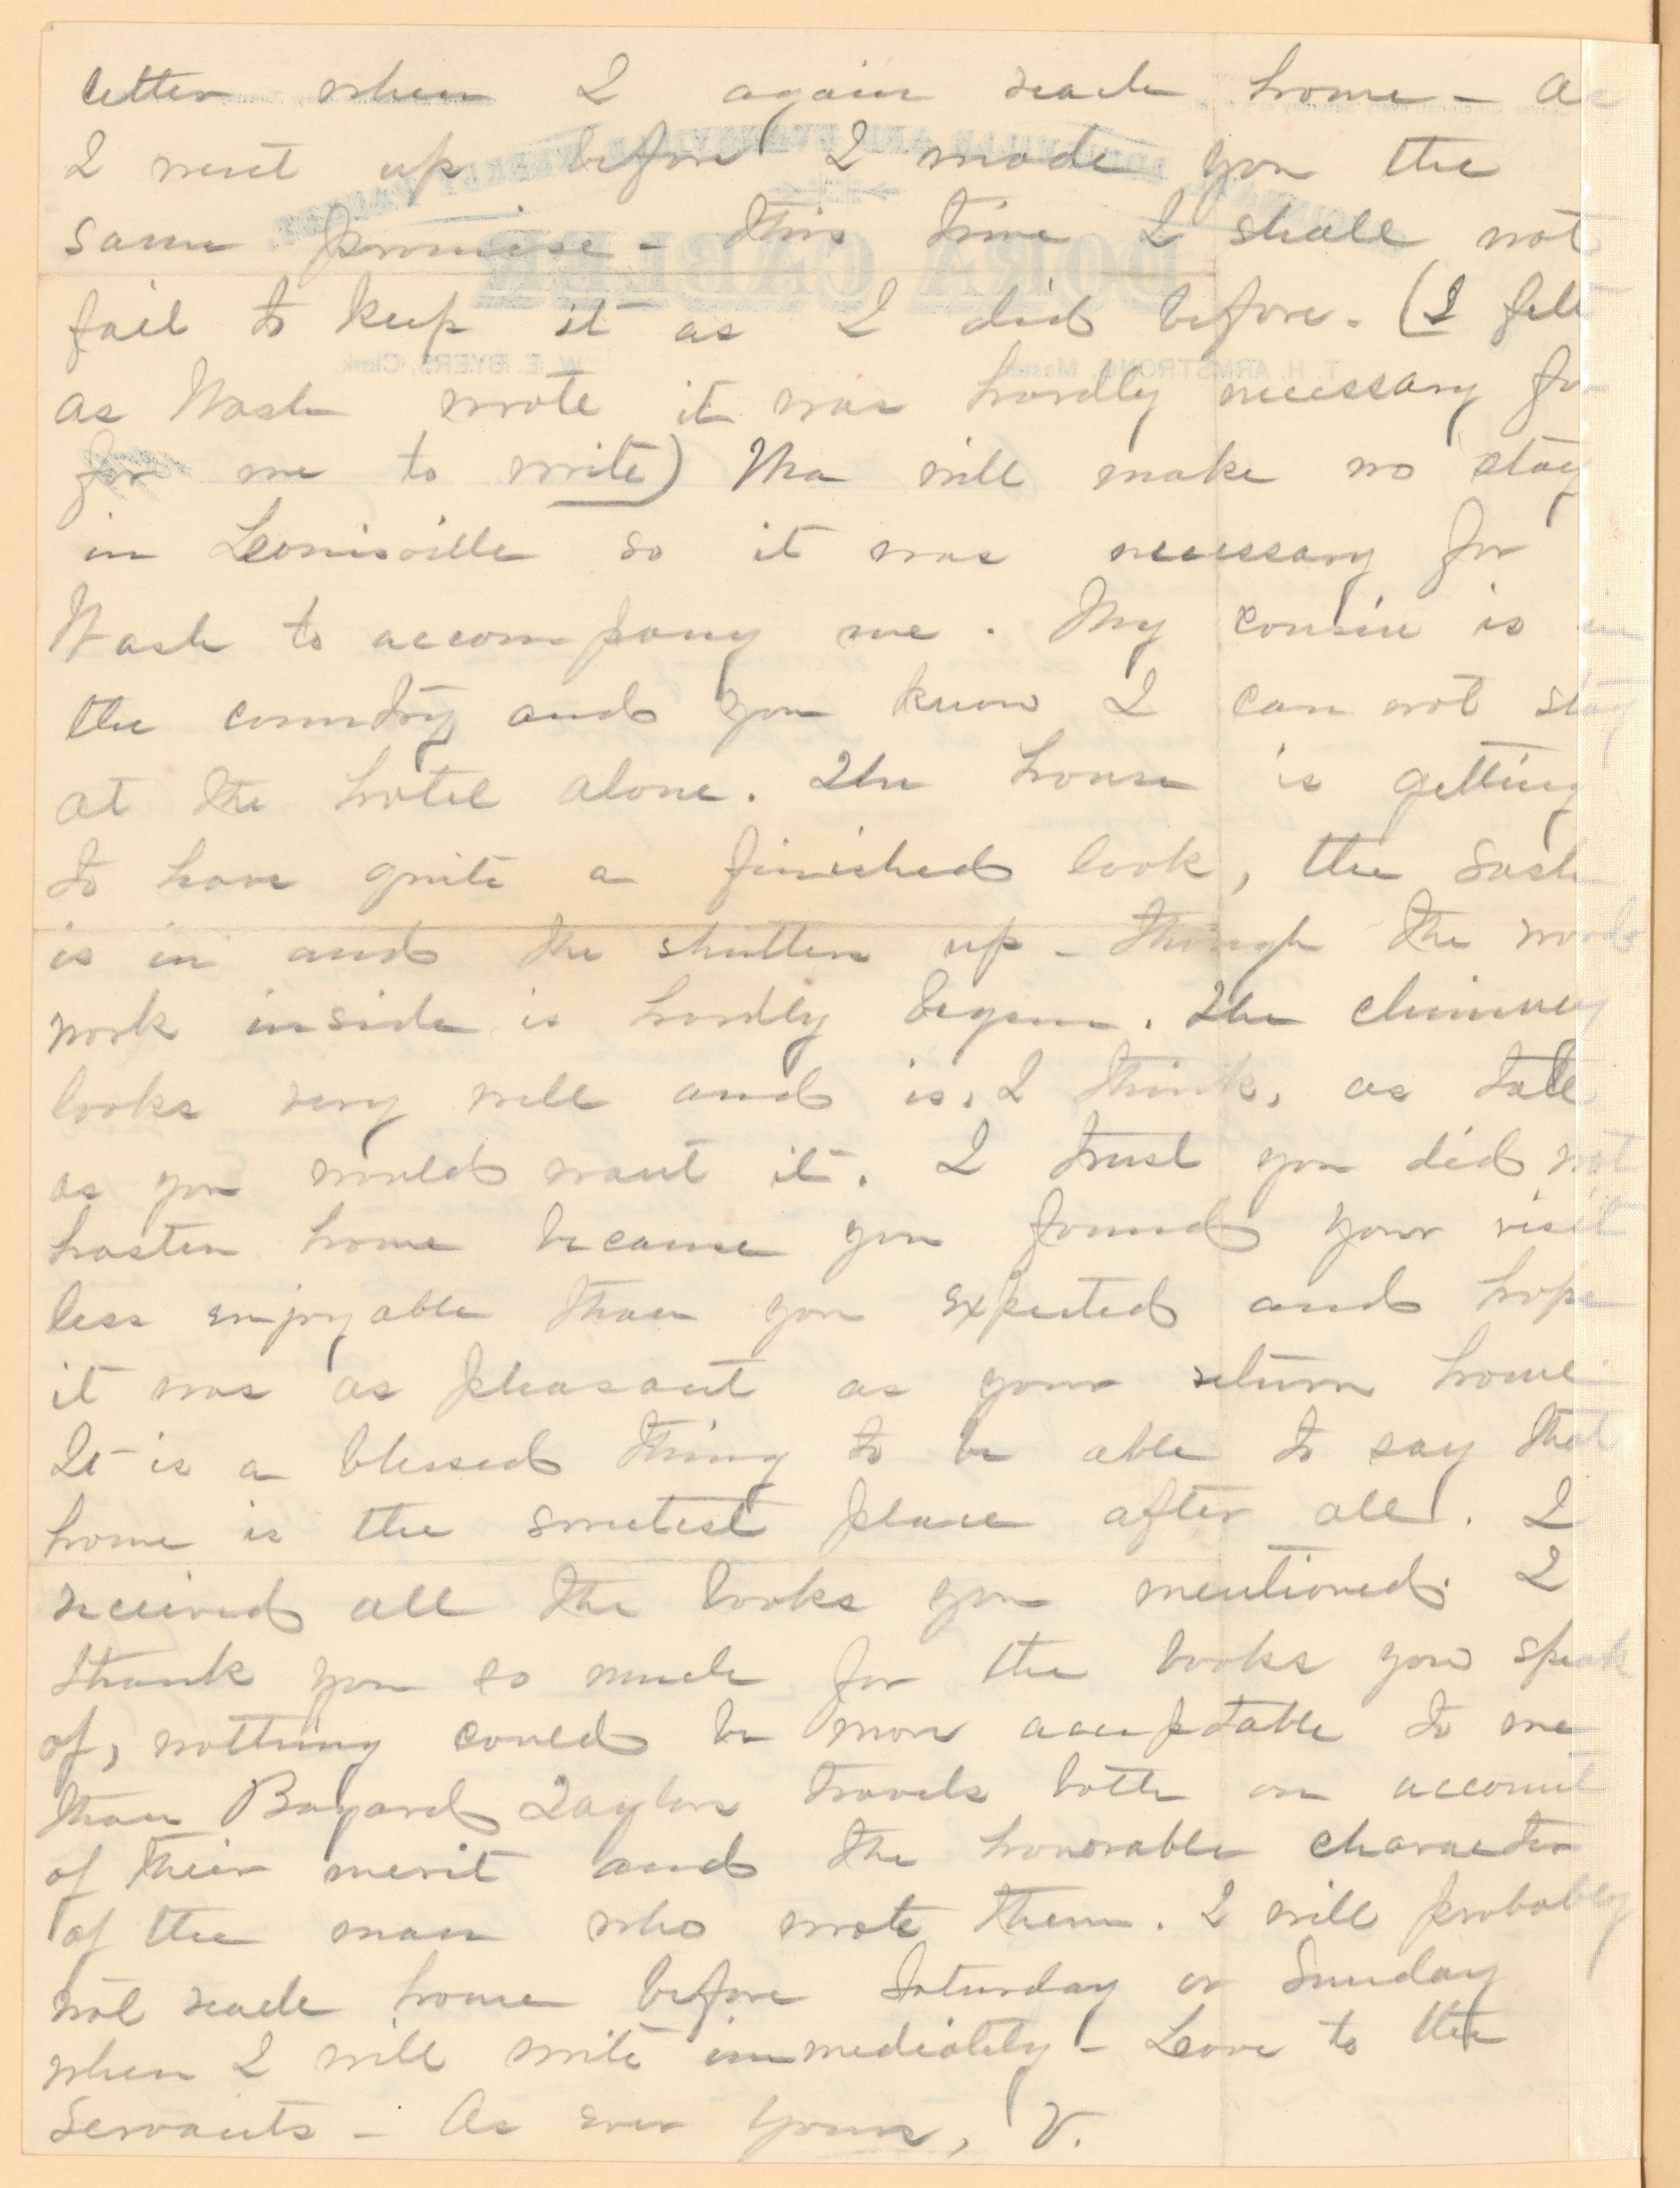 letter when I again reach home - as
I went up before I made you the
same promise - this time I shall not
fail to keep it as I did before. (I felt
as Wash wrote it was hardly necessary for
for me to write) Ma will make no stay
in Louisville so it was necessary for
Wash to accompany me. My cousin is in
the country and you know I can not stay
at the hotel alone. The house is getting
to have quite a finished look, the sash
is in and the shutters up - though the wood
work inside is hardly begun. The chimney
looks very well and is, I think, as tall
as you would want it. I trust you did not
hasten home because you found your visit
less enjoyable than you expected and hope
it was as pleasant as your return home
It is a blessed thing to be able to say that
home is the sweetest place after all. I
received all the books you mentioned. I
thank you so much for the books you speak
of, nothing could be more acceptable to me
than Bayard Taylors travels both on account
of their merit and the honorable character
of the man who wrote them. I will probably
not reach home before Saturday or Sunday
when I will write immediately - Love to the
Servants - As ever yours, V.
LOUISVILLE AND EVANSVILLE WEEKLY PACKET,
DORA CABLER
T. H. ARMSTRONG, Master. W. E. BYERS, Clerk.